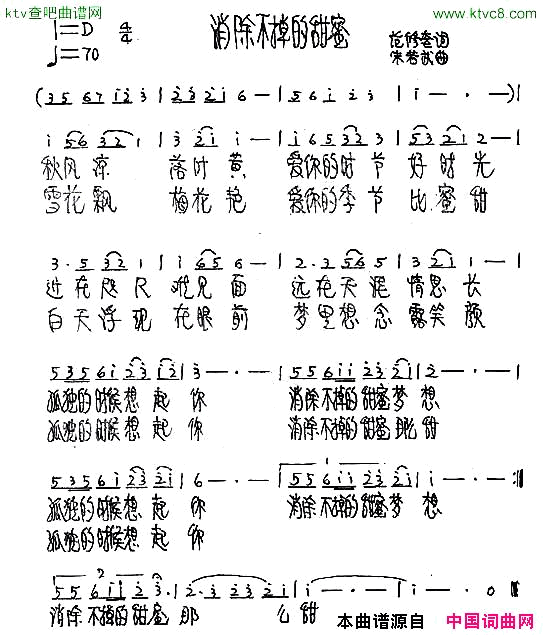 ktv查吧曲谱网
www.ktvc8.com
1=D 4/4 消除不掉的甜蜜
♩=70
词
曲
(3 5 6 7 i 2 3 | 2 3 2 i 6 — | 5 6 i 2 3 | i — · — )|
i 5 6 3 2 1 | 3 2 i i — | i 6 5 3 2 | 5 3 2 i 2 — |
秋风凉 落叶黄 爱你的时节 好时光
雪花飘 梅花艳 爱你的季节 比蜜甜
3 · 5 3 2 1 | i i 6 5 6 — | 2 · 3 5 6 5 | 3 2 i 1 — |
近在咫尺 难见面 远在天涯 情思长
白天浮现 在眼前 梦里想念 露笑颜
5 3 5 6 i 2 3 2 i | 3 — · — | 5 5 6 i i 2 3 2 i | 2 — · — |
孤独的时候想起你 消除不掉的甜蜜梦想
孤独的时候想起你 消除不掉的甜蜜 甜
5 3 5 6 i 2 3 2 i | 6 — · — | 5 5 6 i i 2 3 2 i | i — · — :‖
孤独的时候想起你 消除不掉的甜蜜梦想
孤独的时候想起你
5 5 6 i i 2 3 2 · | 2 · 3 2 3 2 i | i — · — | i — — 0 ‖
消除不掉的甜蜜那 么甜
本曲谱源自 中国词曲网